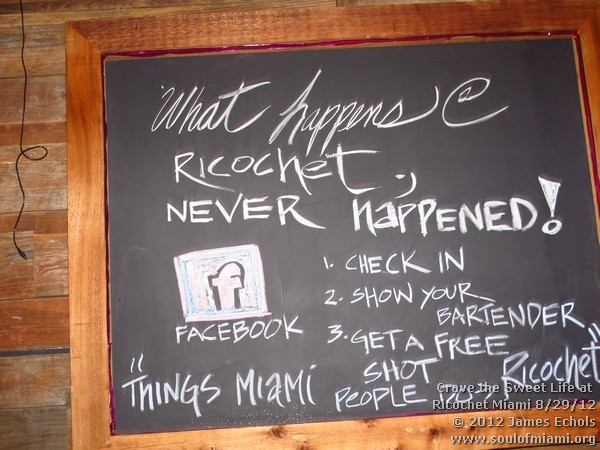 What happens @
RICOCHET,
NEVER HAPPENED!
f
FACEBOOK
1. CHECK IN
2. SHOW YOUR
BARTENDER
3. GET A FREE
SHOT
"THINGS MIAMI
PEOPLE
Ricochet"
Crave the Sweet Life at
Ricochet Miami 8/29/12
© 2012 James Echols
www.soulofmiami.org